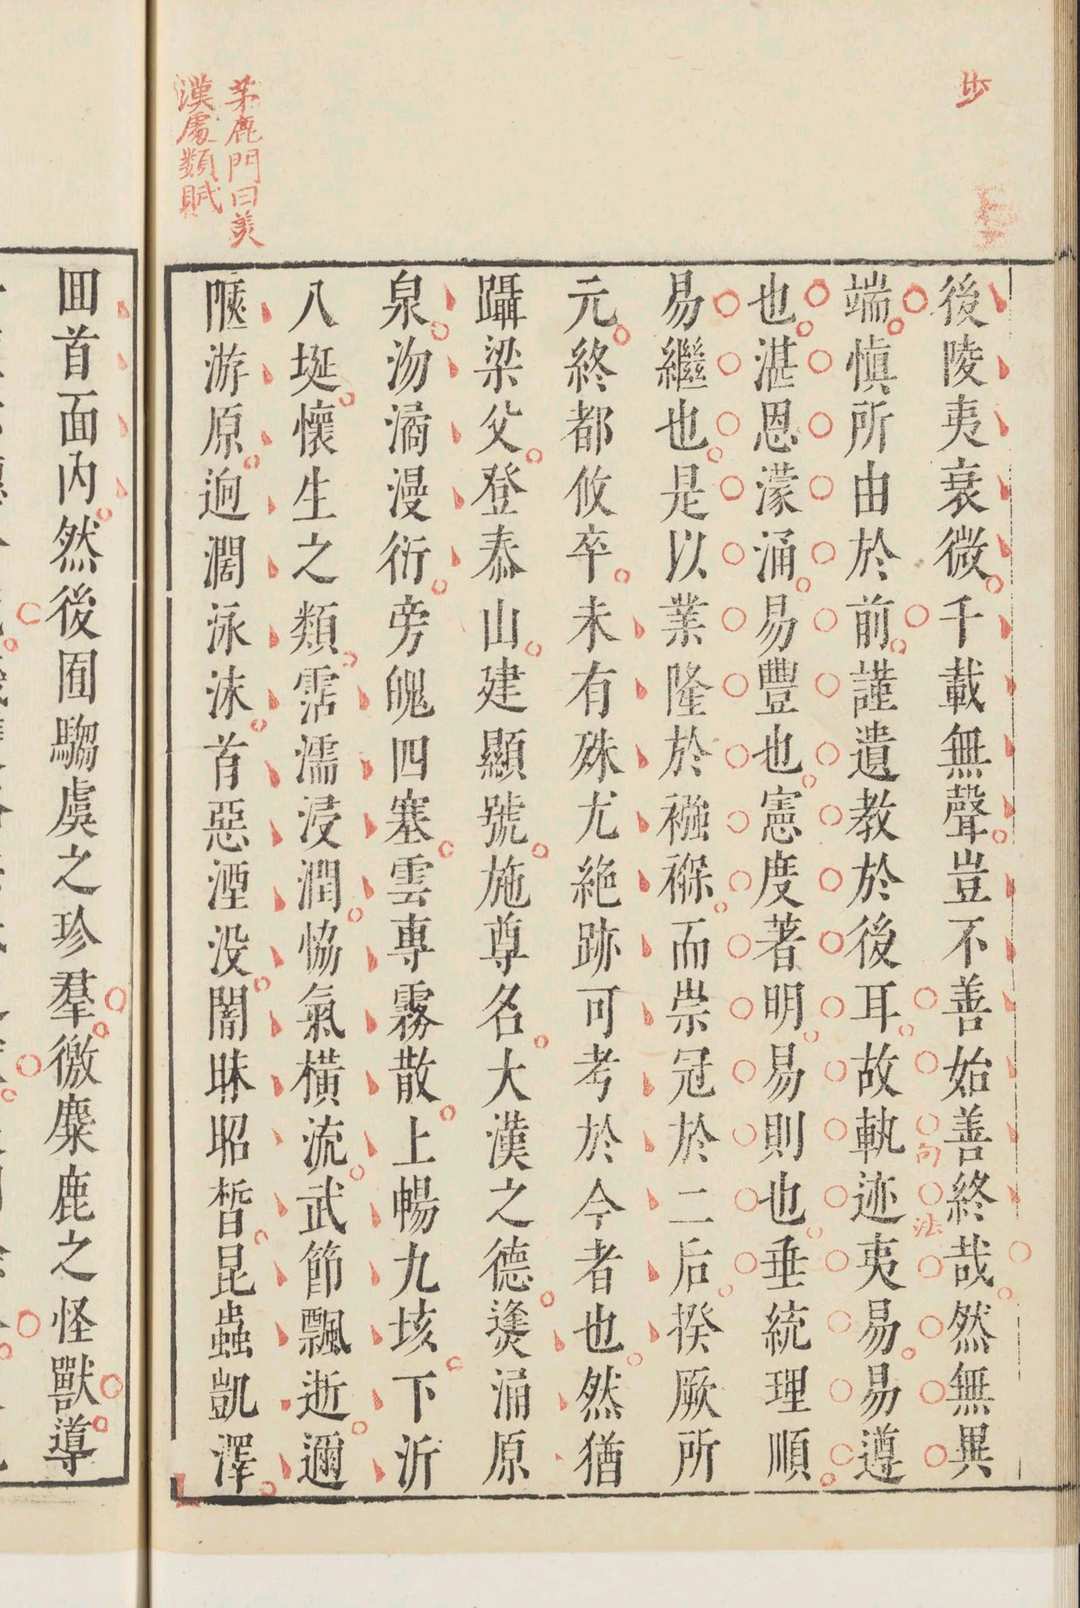 歩
後陵夷衰微千載無聲豈不善始善終哉然無異
句法
端慎所由於前謹遺教於後耳故軌迹夷易易遵
也湛恩濛涌易豐也憲度著明易則也垂統理順
易繼也是以業隆於襁褓而崇冠於二后揆厥所
元終都攸卒未有殊尤絶跡可考於今者也然猶
躡梁父登泰山建顯號施尊名大漢之德㷭涌原
泉沕潏漫衍旁魄四塞雲専霧散上暢九垓下泝
八埏懷生之類霑濡浸潤恊氣橫流武節飄逝邇
陿游原逈濶泳沫首惡湮没闇昧昭晳昆蟲凱澤
茅鹿門曰美
漢處類賦
囬首面内然後囿騶虞之珍羣徼麋鹿之怪獸導